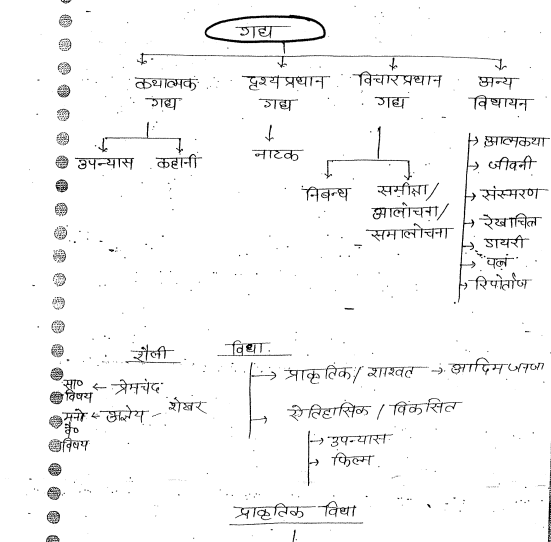 गद्य
कथात्मक दृश्य प्रधान विचार प्रधान अन्य
गद्य गद्य गद्य विधायन
उपन्यास कहानी
नाटक
निबन्ध समीक्षा/
आलोचना/
समालोचना
→ आत्मकथा
→ जीवनी
→ संस्मरण
→ रेखाचित्र
→ डायरी
→ पत्र
→ रिपोर्ताज
शैली विधा
सा० ← प्रेमचंद
विषय
मनो ← अज्ञेय – शेखर
वै०
विषय
→ प्राकृतिक / शाश्वत → आदिम
→ ऐतिहासिक / विकसित
→ उपन्यास
→ फिल्म
प्राकृतिक विधा